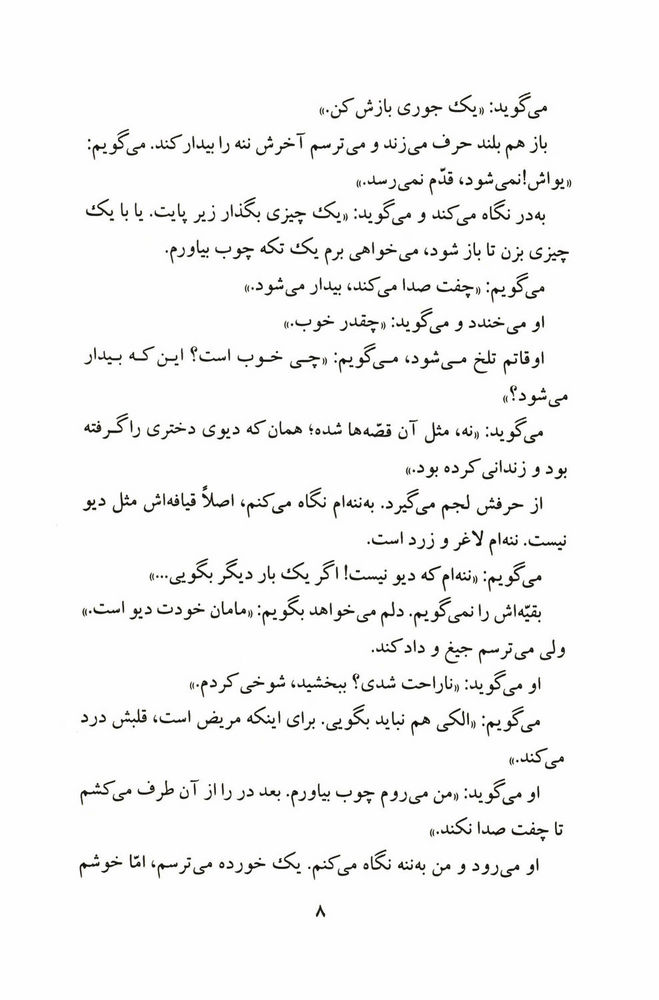 می‌گوید: «یک جوری بازش کن.»
باز هم بلند حرف می‌زند و می‌ترسم آخرش ننه را بیدار کند. می‌گویم:
«یواش! نمی‌شود، قدّم نمی‌رسد.»
به‌در نگاه می‌کند و می‌گوید: «یک چیزی بگذار زیر پایت. یا با یک
چیزی بزن تا باز شود، می‌خواهی برم یک تکه چوب بیاورم.
می‌گویم: «چفت صدا می‌کند، بیدار می‌شود.»
او می‌خندد و می‌گوید: «چقدر خوب.»
اوقاتم تلخ می‌شود، می‌گویم: «چی خوب است؟ این که بیدار
می‌شود؟»
می‌گوید: «نه، مثل آن قصّه‌ها شده؛ همان که دیوی دختری را گرفته
بود و زندانی کرده بود.»
از حرفش لجم می‌گیرد. به‌ننه‌ام نگاه می‌کنم، اصلاً قیافه‌اش مثل دیو
نیست. ننه‌ام لاغر و زرد است.
می‌گویم: «ننه‌ام که دیو نیست! اگر یک بار دیگر بگویی...»
بقیّه‌اش را نمی‌گویم. دلم می‌خواهد بگویم: «مامان خودت دیو است.»
ولی می‌ترسم جیغ و داد کند.
او می‌گوید: «ناراحت شدی؟ ببخشید، شوخی کردم.»
می‌گویم: «الکی هم نباید بگویی. برای اینکه مریض است، قلبش درد
می‌کند.»
او می‌گوید: «من می‌روم چوب بیاورم. بعد در را از آن طرف می‌کشم
تا چفت صدا نکند.»
او می‌رود و من به‌ننه نگاه می‌کنم. یک خورده می‌ترسم، امّا خوشم
۸